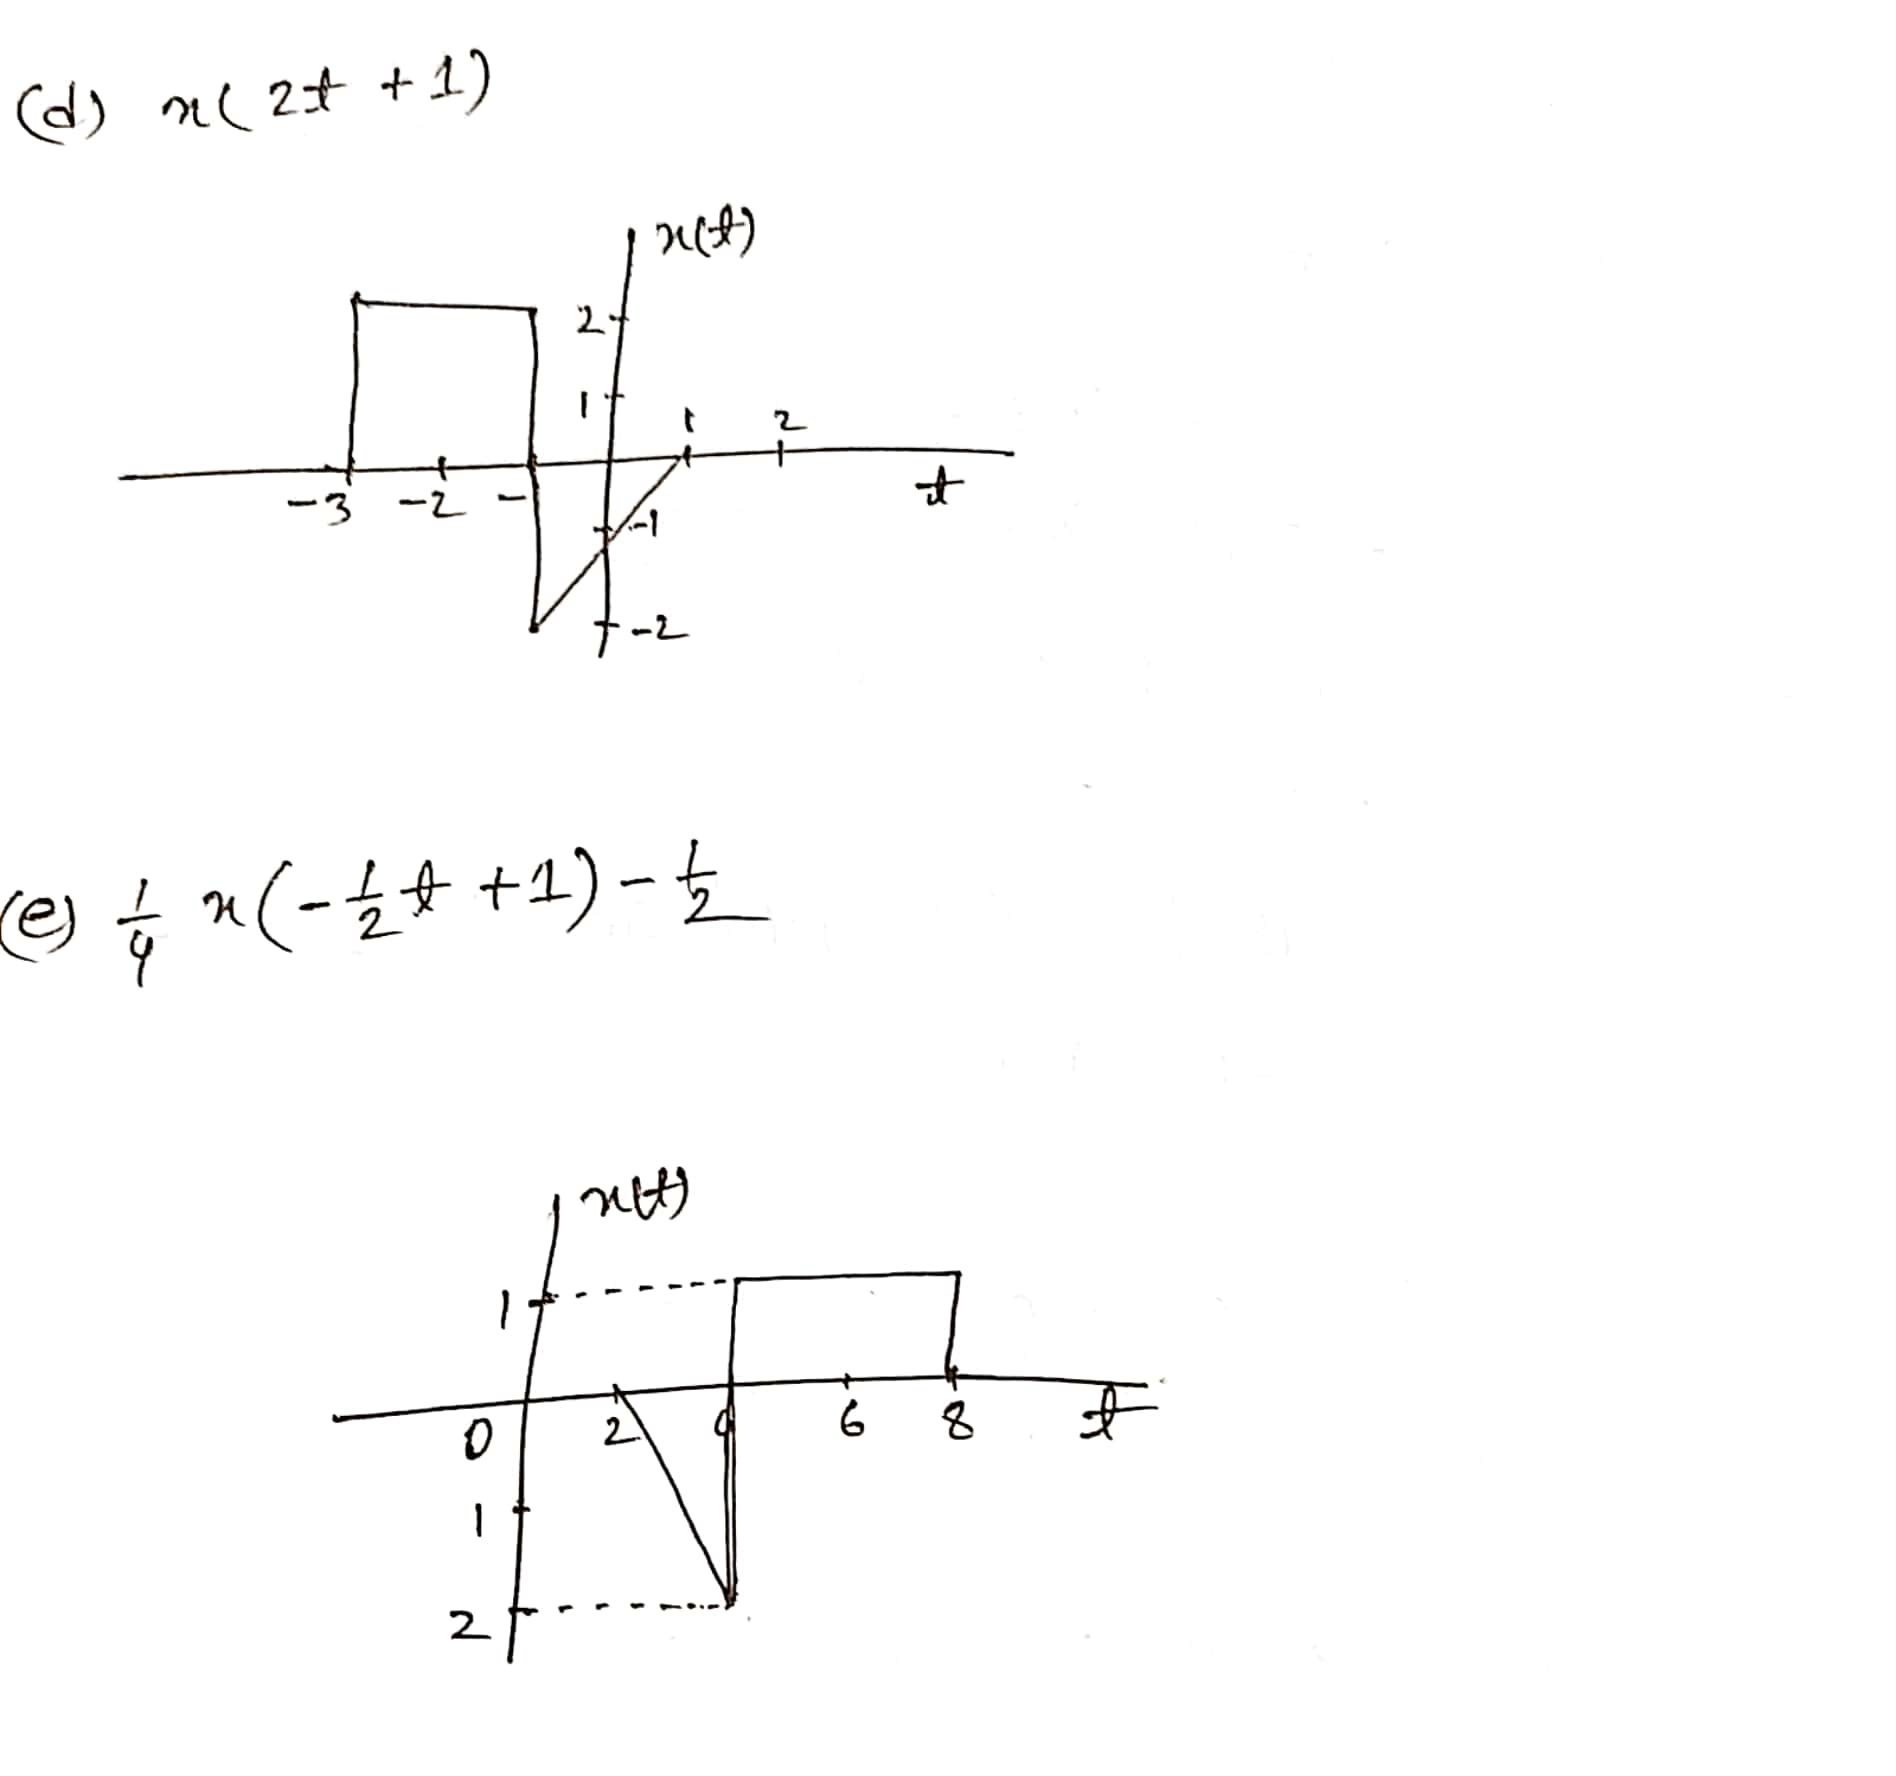 (d) x(2t + 1)
x(t)
2
1
1 2
-3 -2 -
t
-1
-2
(e) 1/4 x(-1/2 t + 1) - 1/2
x(t)
1
0 2 4 6 8 t
1
2